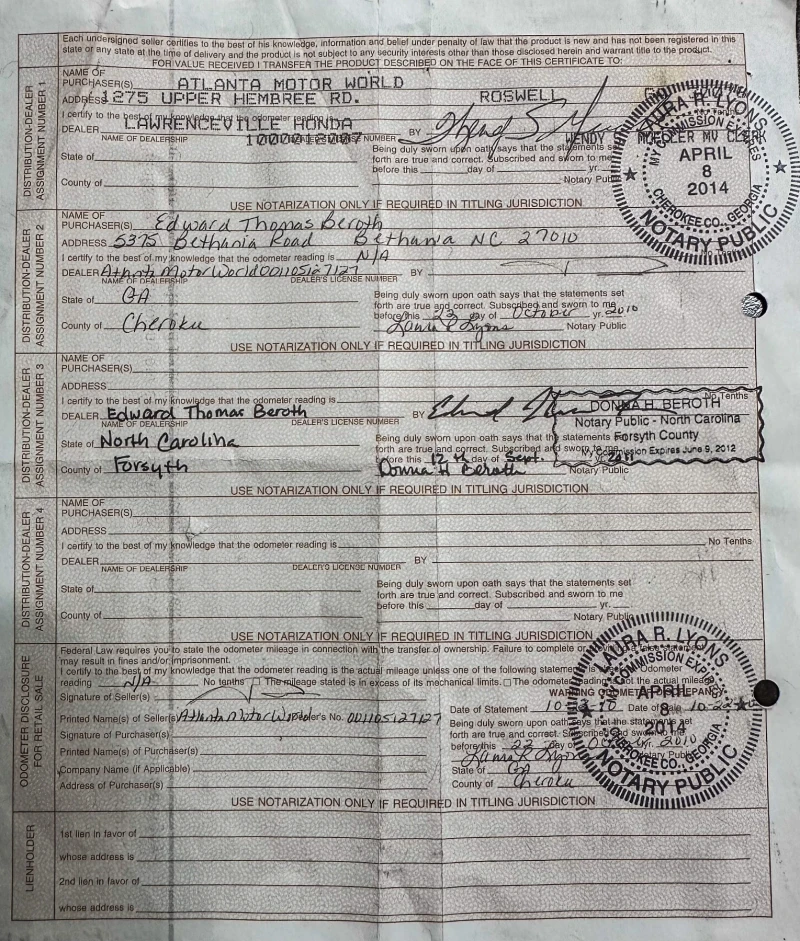 Each undersigned seller certifies to the best of his knowledge, information and belief under penalty of law that the product is new and has not been registered in this
state or any state at the time of delivery and the product is not subject to any security interests other than those disclosed herein and warrant title to the product.
FOR VALUE RECEIVED I TRANSFER THE PRODUCT DESCRIBED ON THE FACE OF THIS CERTIFICATE TO:
DISTRIBUTION-DEALER ASSIGNMENT NUMBER 1
NAME OF
PURCHASER(S) ATLANTA MOTOR WORLD
ADDRESS 1275 UPPER HEMBREE RD. ROSWELL
I certify to the best of my knowledge that the odometer reading is
DEALER LAWRENCEVILLE HONDA BY
NAME OF DEALERSHIP NUMBER WENDY MOEDLER MV CLERK
Being duly sworn upon oath says that the statements set
State of forth are true and correct. Subscribed and sworn to me
before this day of yr.
County of Notary Public
USE NOTARIZATION ONLY IF REQUIRED IN TITLING JURISDICTION
LAURA R. LYONS
MY COMMISSION EXPIRES
APRIL
8
2014
CHEROKEE CO., GEORGIA
NOTARY PUBLIC
DISTRIBUTION-DEALER ASSIGNMENT NUMBER 2
NAME OF
PURCHASER(S) Edward Thomas Beroth
ADDRESS 5375 Bethania Road Bethania NC 27010
I certify to the best of my knowledge that the odometer reading is N/A
DEALER Atlanta Motor World 001105127127 BY
NAME OF DEALERSHIP DEALER'S LICENSE NUMBER
State of GA Being duly sworn upon oath says that the statements set
forth are true and correct. Subscribed and sworn to me
before this 22 day of October yr. 2010
County of Cheroku Laura R Lyons Notary Public
USE NOTARIZATION ONLY IF REQUIRED IN TITLING JURISDICTION
DISTRIBUTION-DEALER ASSIGNMENT NUMBER 3
NAME OF
PURCHASER(S)
ADDRESS
I certify to the best of my knowledge that the odometer reading is No Tenths
DEALER Edward Thomas Beroth BY
NAME OF DEALERSHIP DEALER'S LICENSE NUMBER
State of North Carolina Being duly sworn upon oath says that the statements set
forth are true and correct. Subscribed and sworn to me
before this 12th day of Sept. yr. 2011
County of Forsyth Donna H Beroth Notary Public
DONNA H. BEROTH
Notary Public - North Carolina
Forsyth County
My Commission Expires June 9, 2012
USE NOTARIZATION ONLY IF REQUIRED IN TITLING JURISDICTION
DISTRIBUTION-DEALER ASSIGNMENT NUMBER 4
NAME OF
PURCHASER(S)
ADDRESS
I certify to the best of my knowledge that the odometer reading is No Tenths
DEALER BY
NAME OF DEALERSHIP DEALER'S LICENSE NUMBER
Being duly sworn upon oath says that the statements set
State of forth are true and correct. Subscribed and sworn to me
before this day of yr.
County of Notary Public
USE NOTARIZATION ONLY IF REQUIRED IN TITLING JURISDICTION
ODOMETER DISCLOSURE FOR RETAIL SALE
Federal Law requires you to state the odometer mileage in connection with the transfer of ownership. Failure to complete or providing a false statement
may result in fines and/or imprisonment.
I certify to the best of my knowledge that the odometer reading is the actual mileage unless one of the following statements is Odometer
reading N/A No tenths The mileage stated is in excess of its mechanical limits. The odometer reading is not the actual mileage
WARNING ODOMETER DISCREPANCY
Signature of Seller(s)
Date of Statement Date of Sale
Printed Name(s) of Seller(s) Atlanta Motor World Dealer's No. 001105127127
Being duly sworn upon oath says that the statements set
Signature of Purchaser(s) forth are true and correct. Subscribed and sworn to me
before this 22 day of October yr. 2010
Printed Name(s) of Purchaser(s) Laura R Lyons Notary Public
Company Name (if Applicable) State of GA
Address of Purchaser(s) County of Cheroku
LAURA R. LYONS
COMMISSION EXPIRES
APRIL
8
2014
CHEROKEE CO., GEORGIA
NOTARY PUBLIC
USE NOTARIZATION ONLY IF REQUIRED IN TITLING JURISDICTION
LIENHOLDER
1st lien in favor of
whose address is
2nd lien in favor of
whose address is